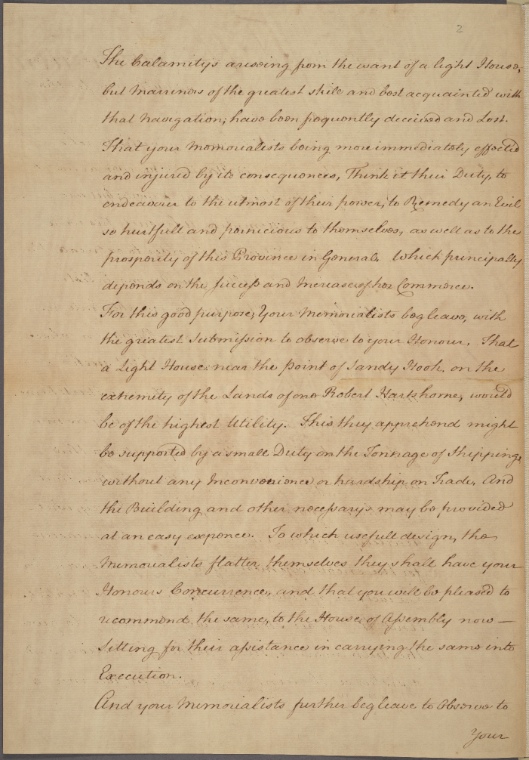 2
The Calamitys areseing from the want of a light House,
but Marinors of the greatest skile and best acquainted with
that Navigation, have been frequontly deceived and Lost.
That your Memorialists being more immediately effected
and injured by its consequences, Think it their Duty, to
endeavour to the utmost of their power, to Remedy an Evil
so hurtfull and pernicious to themselves, as well as to the
prosperity of this Province in General. Which principally
depends on the success and Increase of her Commerce.
For this good purpose, Your Memorialists beg leave, with
the greatest Submission to observe to your Honour, That
a Light House near the point of Sandy Hook, on the
extremity of the Lands of one Robert Hartshorne, would
be of the highest Utility. This they apprehend might
be supported by a small Duty on the Tonnage of Shipping,
without any Inconvenience or hardship on Trade, And
the Building and other necessarys may be provided
at an easy expence. To which usefull design, the
Memorialists flatter themselves they shall have your
Honours Concurrence, and that you will be pleased to
recommend the same, to the House of Assembly now —
Sitting for their assistance in carrying the same into
Execution.
And your Memorialists further beg leave to Observe to
Your